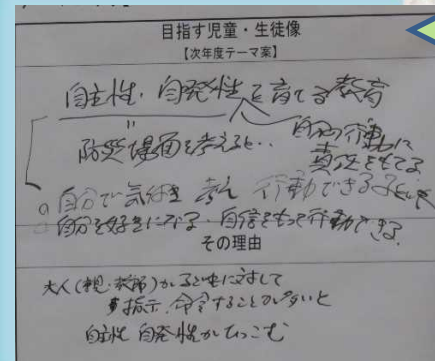 目指す児童・生徒像
【次年度テーマ案】
自主性・自発性を育てる教育
"
防災場面を考えると‥
自分の行動に
責任をもてる
自分で気付き 考え 行動できる子ども
自分を好きになる・自信をもって行動できる
その理由
大人(親・教師)が子どもに対して
指示、命令することが多いと
自主性 自発性がひっこむ